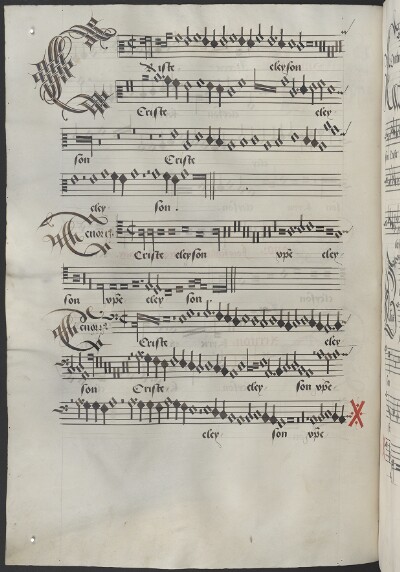 Criste eleyson
Criste eley
son Criste
eley son.
Tenor
Criste eleyson xpe eley
son xpe eley son
Tenor
Criste eley
son Criste eley son xpe
eley son xpe